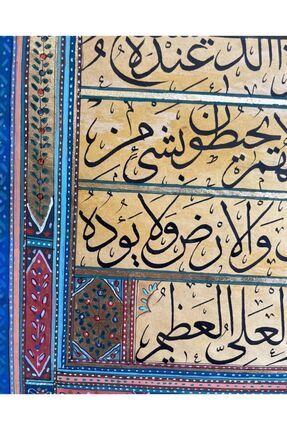 ا الذي عنده
هم يحيطون بشئ من
والارض ولا يؤده
العلي العظيم